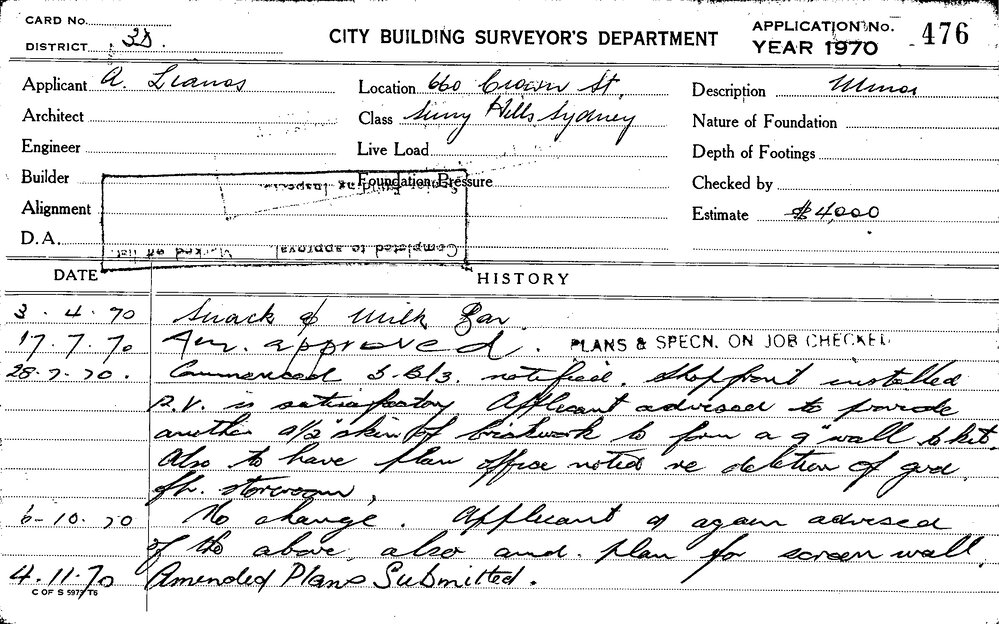 CARD No.
DISTRICT 3D.
CITY BUILDING SURVEYOR'S DEPARTMENT
APPLICATION No. 476
YEAR 1970
Applicant A. Llanos
Location 660 Crown St.
Description Minor
Architect
Class Surry Hills Sydney
Nature of Foundation
Engineer
Live Load
Depth of Footings
Builder
Foundation Pressure
Checked by
Alignment
Estimate $4,000
D.A.
Completed to approval Marked off list.
DATE
HISTORY
3. 4. 70 Snack & Milk Bar.
17. 7. 70 approved. PLANS & SPECN. ON JOB CHECKED
28. 7. 70. Commenced notified. Shopfront installed
is satisfactory Applicant advised to provide
another 4½" skin of brickwork to form a 9" wall to kit.
Also to have plan office noted re deletion of grd
flr. storeroom.
6-10. 70 No change. Applicant again advised
of the above also amd. plan for screen wall.
4. 11. 70 Amended Plans Submitted.
C OF S 5973/T6